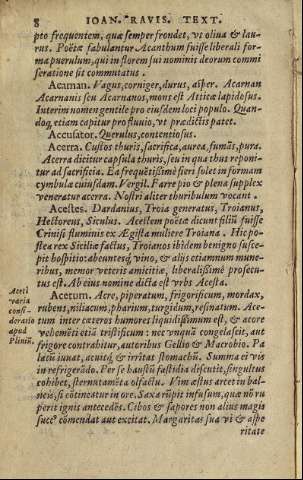 8 IOAN. RAVIS. TEXT.
pto frequentem, quæ semper frondet, vt oliua & lau-
rus. Poëtæ fabulantur Acanthum fuisse liberali for-
ma puerulum, qui in florem sui nominis deorum commi
seratione sit commutatus.
Acaman. Vagus, corniger, durus, asper. Acarnan
Acarnanis seu Acarnanos, mons est Atticæ lapidosus.
Interim nomen gentile pro eiusdem loci populo. Quan-
doq, etiam capitur pro fluuio, vt prædictis patet.
Accusator. Querulus, contentiosus.
Acerra. Custos thuris, sacrifica, aurea, fumās, pura.
Acerra dicitur capsula thuris, seu in qua thus reponi-
tur ad sacrificia. Ea frequētissimè fieri solet in formam
cymbulæ cuiusdam. Vergil. Farre pio & plena supplex
veneratur acerra. Nostri aliter thuribulum vocant.
Acestes. Dardanius, Troia generatus, Troianus,
Hectoreus, Siculus. Acestem poëtæ dicunt filiū fuisse
Crinisi fluminis ex Ægista muliere Troiana. Hic po-
stea rex Siciliæ factus, Troianos ibidem benigno susce-
pit hospitio: abeuntesq́ vino, & alijs etiamnum mune-
ribus, memor veteris amicitiæ, liberalissimè prosecu-
tus est. Ab eius nomine dicta est vrbs Acesta.
Aceti
varia
consi-
deratio
apud
Pliniū.
Acetum. Acre, piperatum, frigorificum, mordax,
rubens, niliacum, pharium, turgidum, resinatum. Ace-
tum inter cæteros humores liquidissimum est, & acore
vehemēti etiā tristificum: nec vnquā congelascit, aut
frigore contrahitur, autoribus Gellio & Macrobio. Pa
latū iuuat, acutq́ & irritat stomachū. Summa ei vis
in refrigerādo. Per se haustū fastidia discutit, singultus
cohibet, sternutamēta olfactu. Vim æstus arcet in bal-
neis, si cōtineatur in ore. Saxa rūpit infusum, quæ nō ru
perit ignis antecedēs. Cibos & sapores non alius magis
succ⁹ cōmendat aut excitat. Margaritas sua vi & aspe
ritate